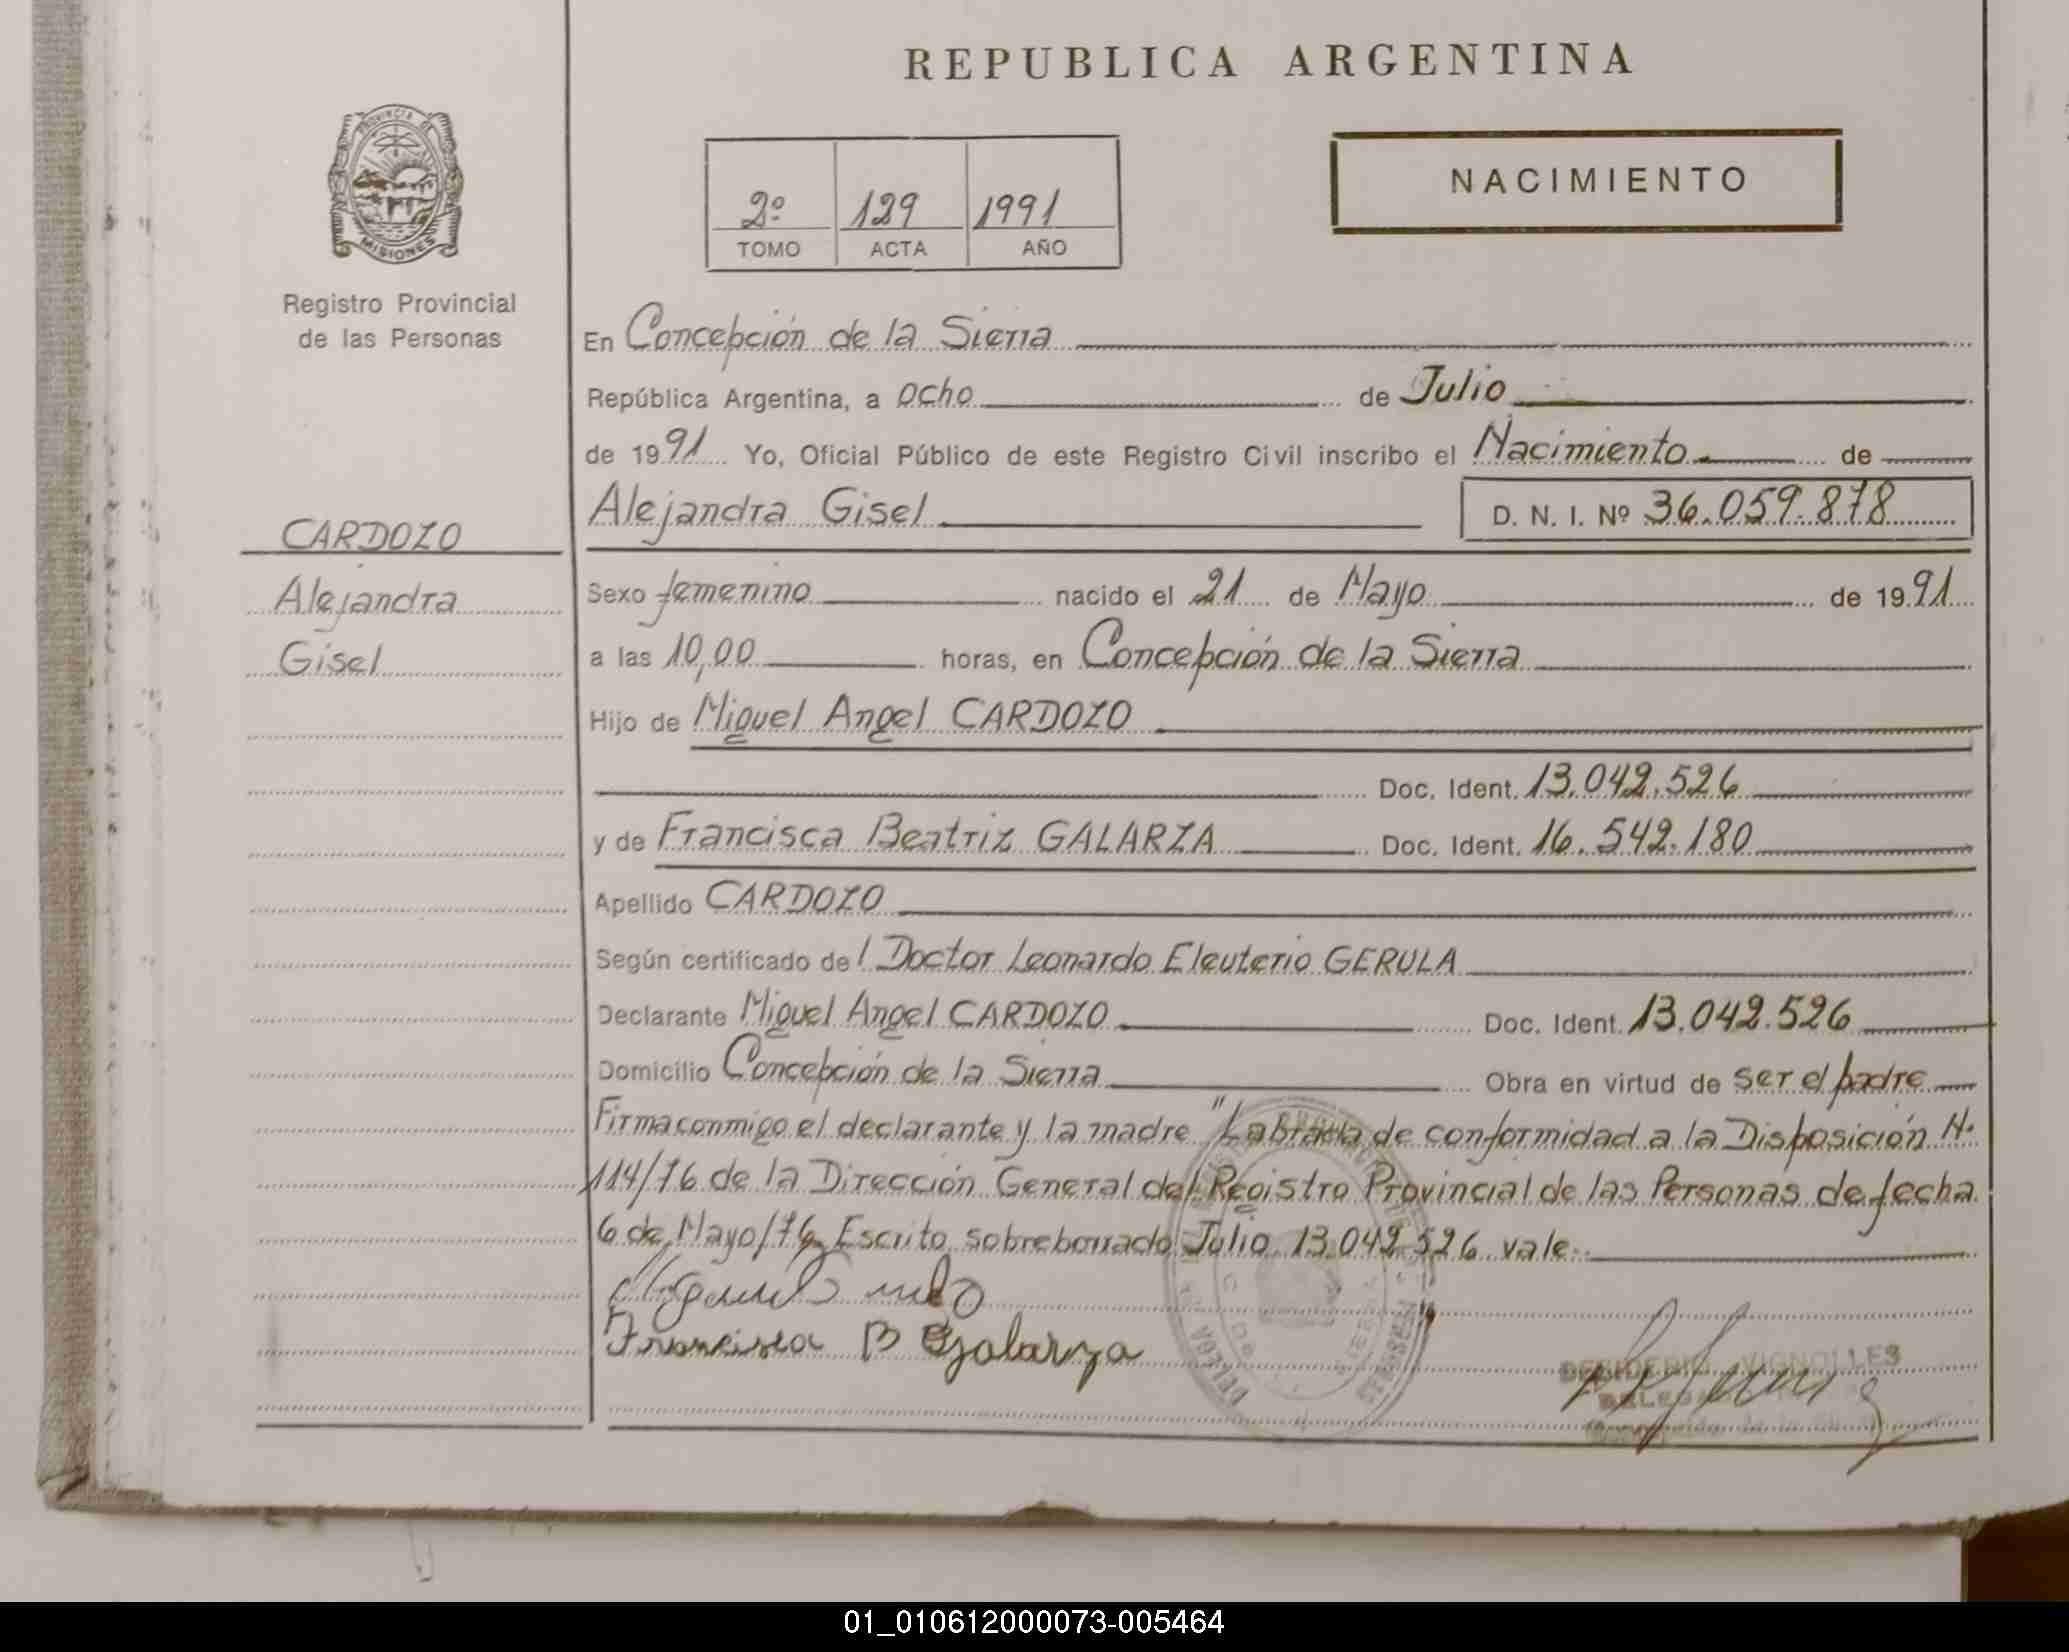 REPUBLICA ARGENTINA
PROVINCIA DE
MISIONES
Registro Provincial
de las Personas
2º 129 1991
TOMO ACTA AÑO
NACIMIENTO
En Concepción de la Sierra
República Argentina, a ocho de Julio
de 1991 Yo, Oficial Público de este Registro Civil inscribo el Nacimiento de
Alejandra Gisel D. N. I. Nº 36.059.878
CARDOZO
Alejandra
Gisel
Sexo femenino nacido el 21 de Mayo de 1991
a las 10,00 horas, en Concepción de la Sierra
Hijo de Miguel Angel CARDOZO
Doc. Ident. 13.042.526
y de Francisca Beatriz GALARZA Doc. Ident. 16.542.180
Apellido CARDOZO
Según certificado del Doctor Leonardo Eleuterio GERULA
Declarante Miguel Angel CARDOZO Doc. Ident. 13.042.526
Domicilio Concepción de la Sierra Obra en virtud de ser el padre
Firma conmigo el declarante y la madre "Labrada de conformidad a la Disposición N.
114/76 de la Dirección General del Registro Provincial de las Personas de fecha
6 de Mayo/76 Escrito sobreborrado Julio 13.042.526 vale.
Francisca B Galarza
VIGNOLLES
01_010612000073-005464